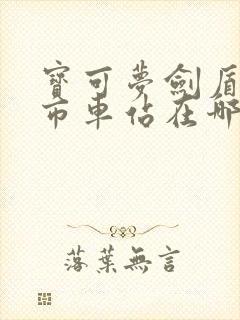 寶可夢劍盾
市車站在哪
落葉無言